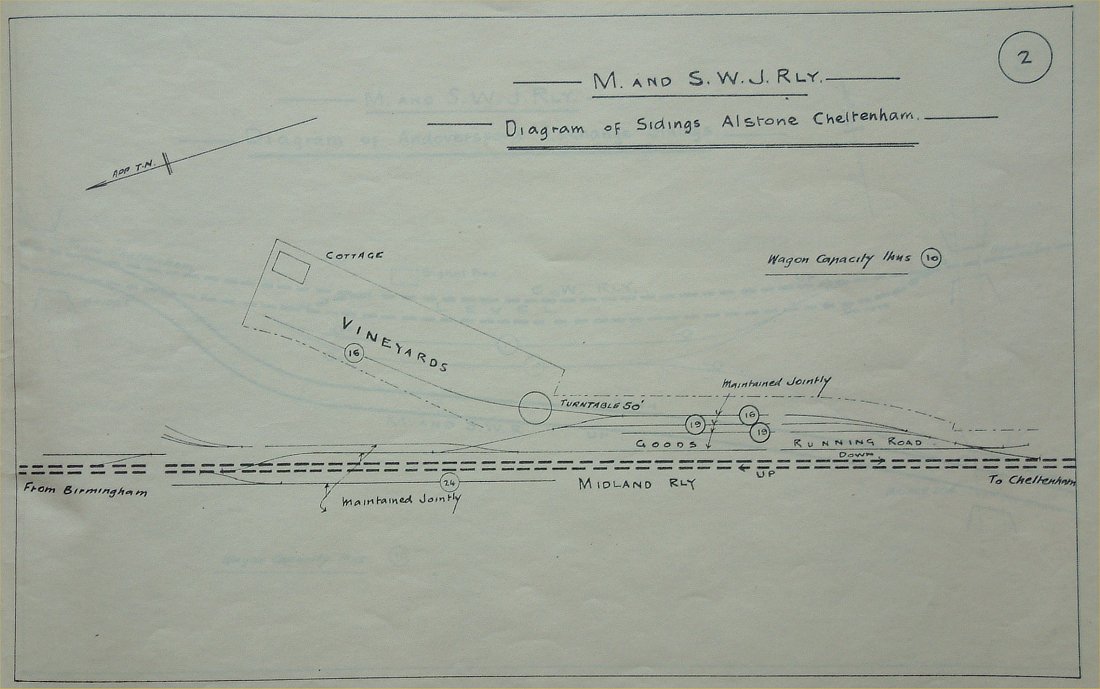 2
M. AND S.W.J. RLY.
Diagram of Sidings Alstone Cheltenham.
APP T.N.
COTTAGE
Wagon Capacity thus 10
VINEYARDS
16
Maintained Jointly
TURNTABLE 50'
19
18
19
GOODS
RUNNING ROAD
DOWN
UP
From Birmingham
24
MIDLAND RLY
To Cheltenham
Maintained Jointly